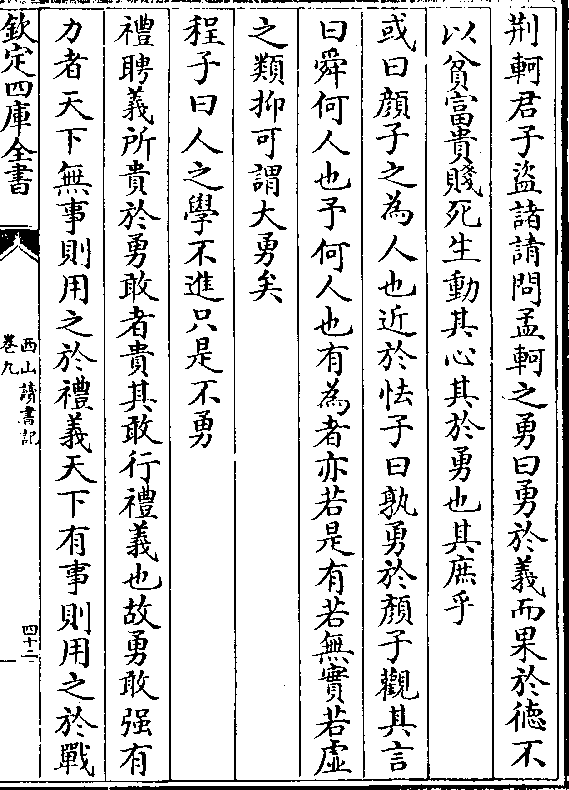 荆軻君子盜諸請問孟軻之勇曰勇於義而果於徳不
以貧富貴賤死生動其心其於勇也其庶乎
或曰顔子之為人也近於怯子曰孰勇於顔子觀其言
曰舜何人也予何人也有為者亦若是有若無實若虛
之類抑可謂大勇矣
程子曰人之學不進只是不勇
禮聘義所貴於勇敢者貴其敢行禮義也故勇敢强有
力者天下無事則用之於禮義天下有事則用之於戰
欽定四庫全書
西山讀書記
卷九
四十二